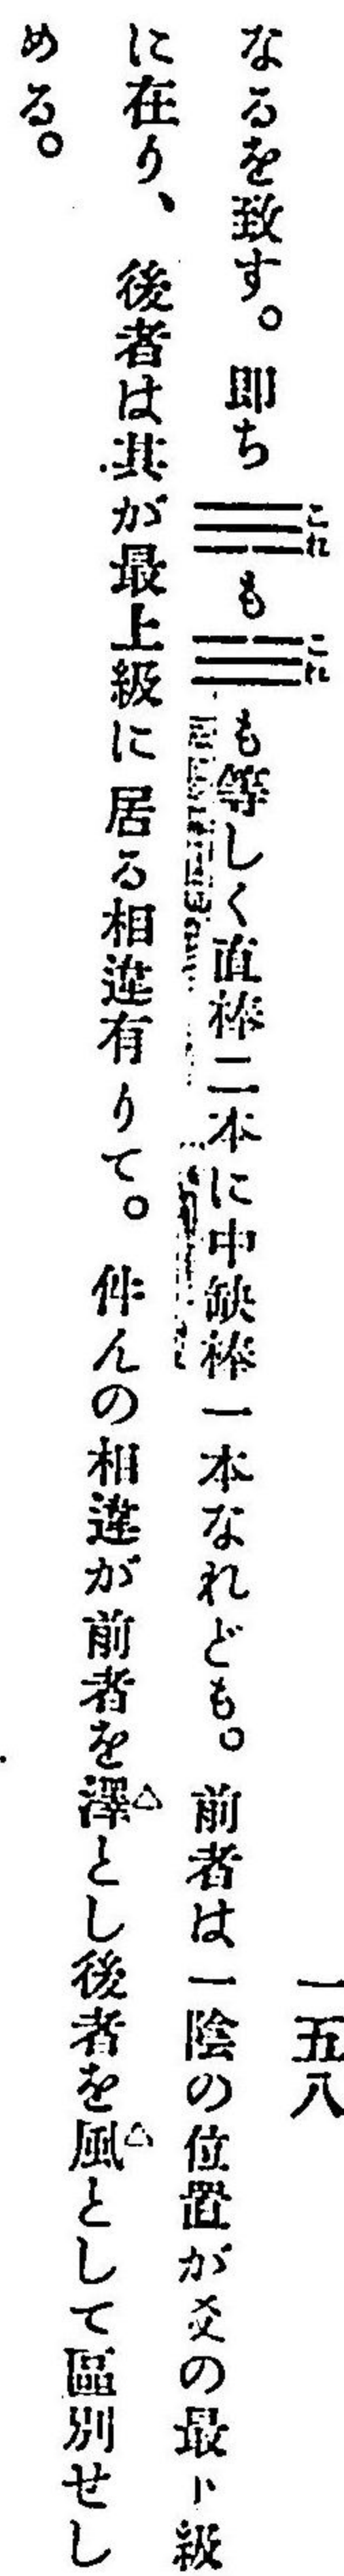 一五八
なるを致す。即ち☴も☱も等しく直棒二本に中缺棒一本なれども。前者は一陰の位置が爻の最下級
に在り、後者は其が最上級に居る相違有りて。件んの相違が前者を澤とし後者を風として區別せし
める。